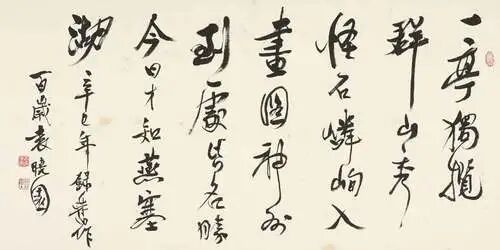 一亭獨攬
群山秀
怪石嶙峋入
畫圖神州
到處皆名勝
今日才知燕塞
湖 辛巳年錄舊作
百歲袁曉園